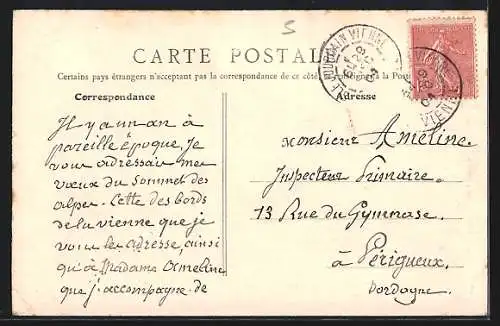 5
CARTE POSTALE
Certains pays étrangers n'acceptent pas la correspondance de ce côté. (Se renseigner à la Poste
Correspondance
Adresse
Il y a un an à
pareille époque, je
vous adressais mes
vœux du sommet des
alpes. Cette des bords
de la vienne que je
vous les adresse, ainsi
qu'à Madame Ameline
que j'accompagne de
Monsieur Ameline.
Inspecteur Primaire.
13 Rue du Gymnase.
à Périgueux.
Dordogne.
VIENNE
VIENNE